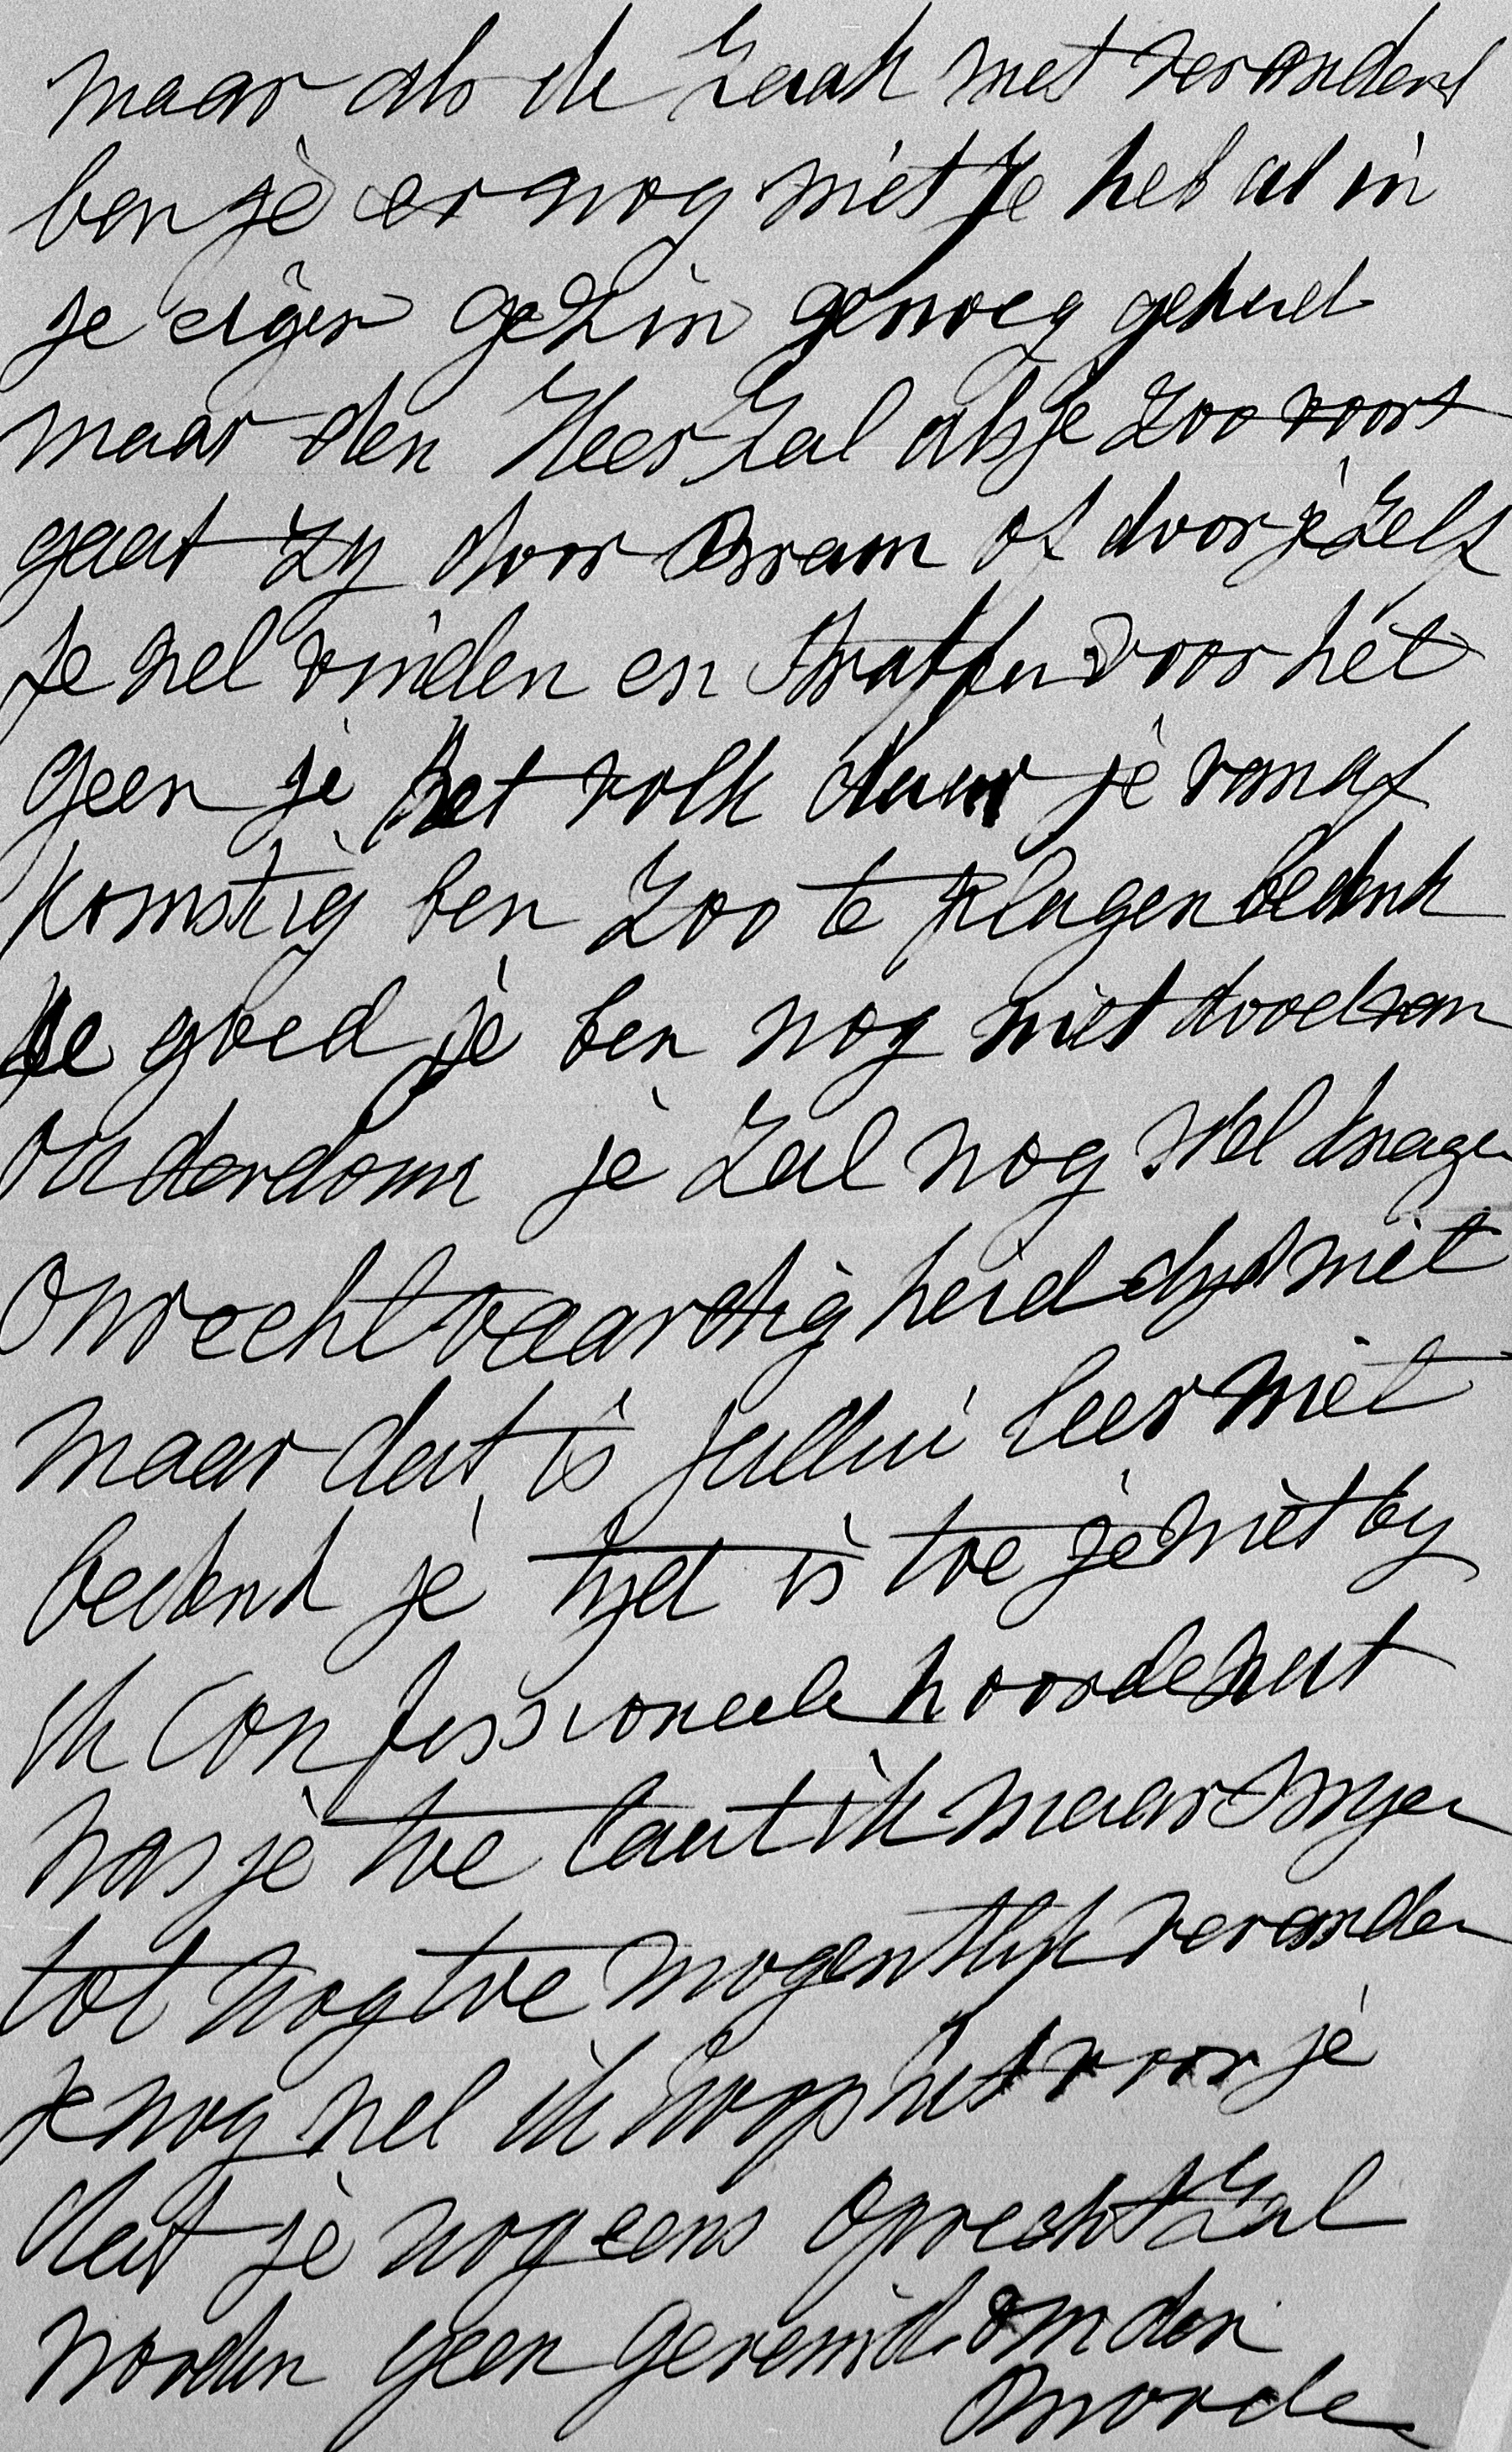 maar als de zaak niet veranderd
ben je er nog niet je heb al in
je eigen gezin genoeg gehad
maar den Heer zal als je zoo voort
gaat zy door Bram of door je zelf
je wel vinden en straffen voor het
geen je het volk daar je van af
komstig ben zoo te plagen bedenk
je goed je ben nog niet dood van
ouderdom je zal nog wel dragen
Onrechtvaardigheid dyd niet
maar dat is jullui leer niet
bedenk je tyd is toe je niet by
ik Confessioneele hoorde wat
was je toe laat ik maar swyen
tot nog toe mogentlyk verander
je nog wel ik hoop het voor je
dat je nog eens oprecht zal
worden geen geveinsd